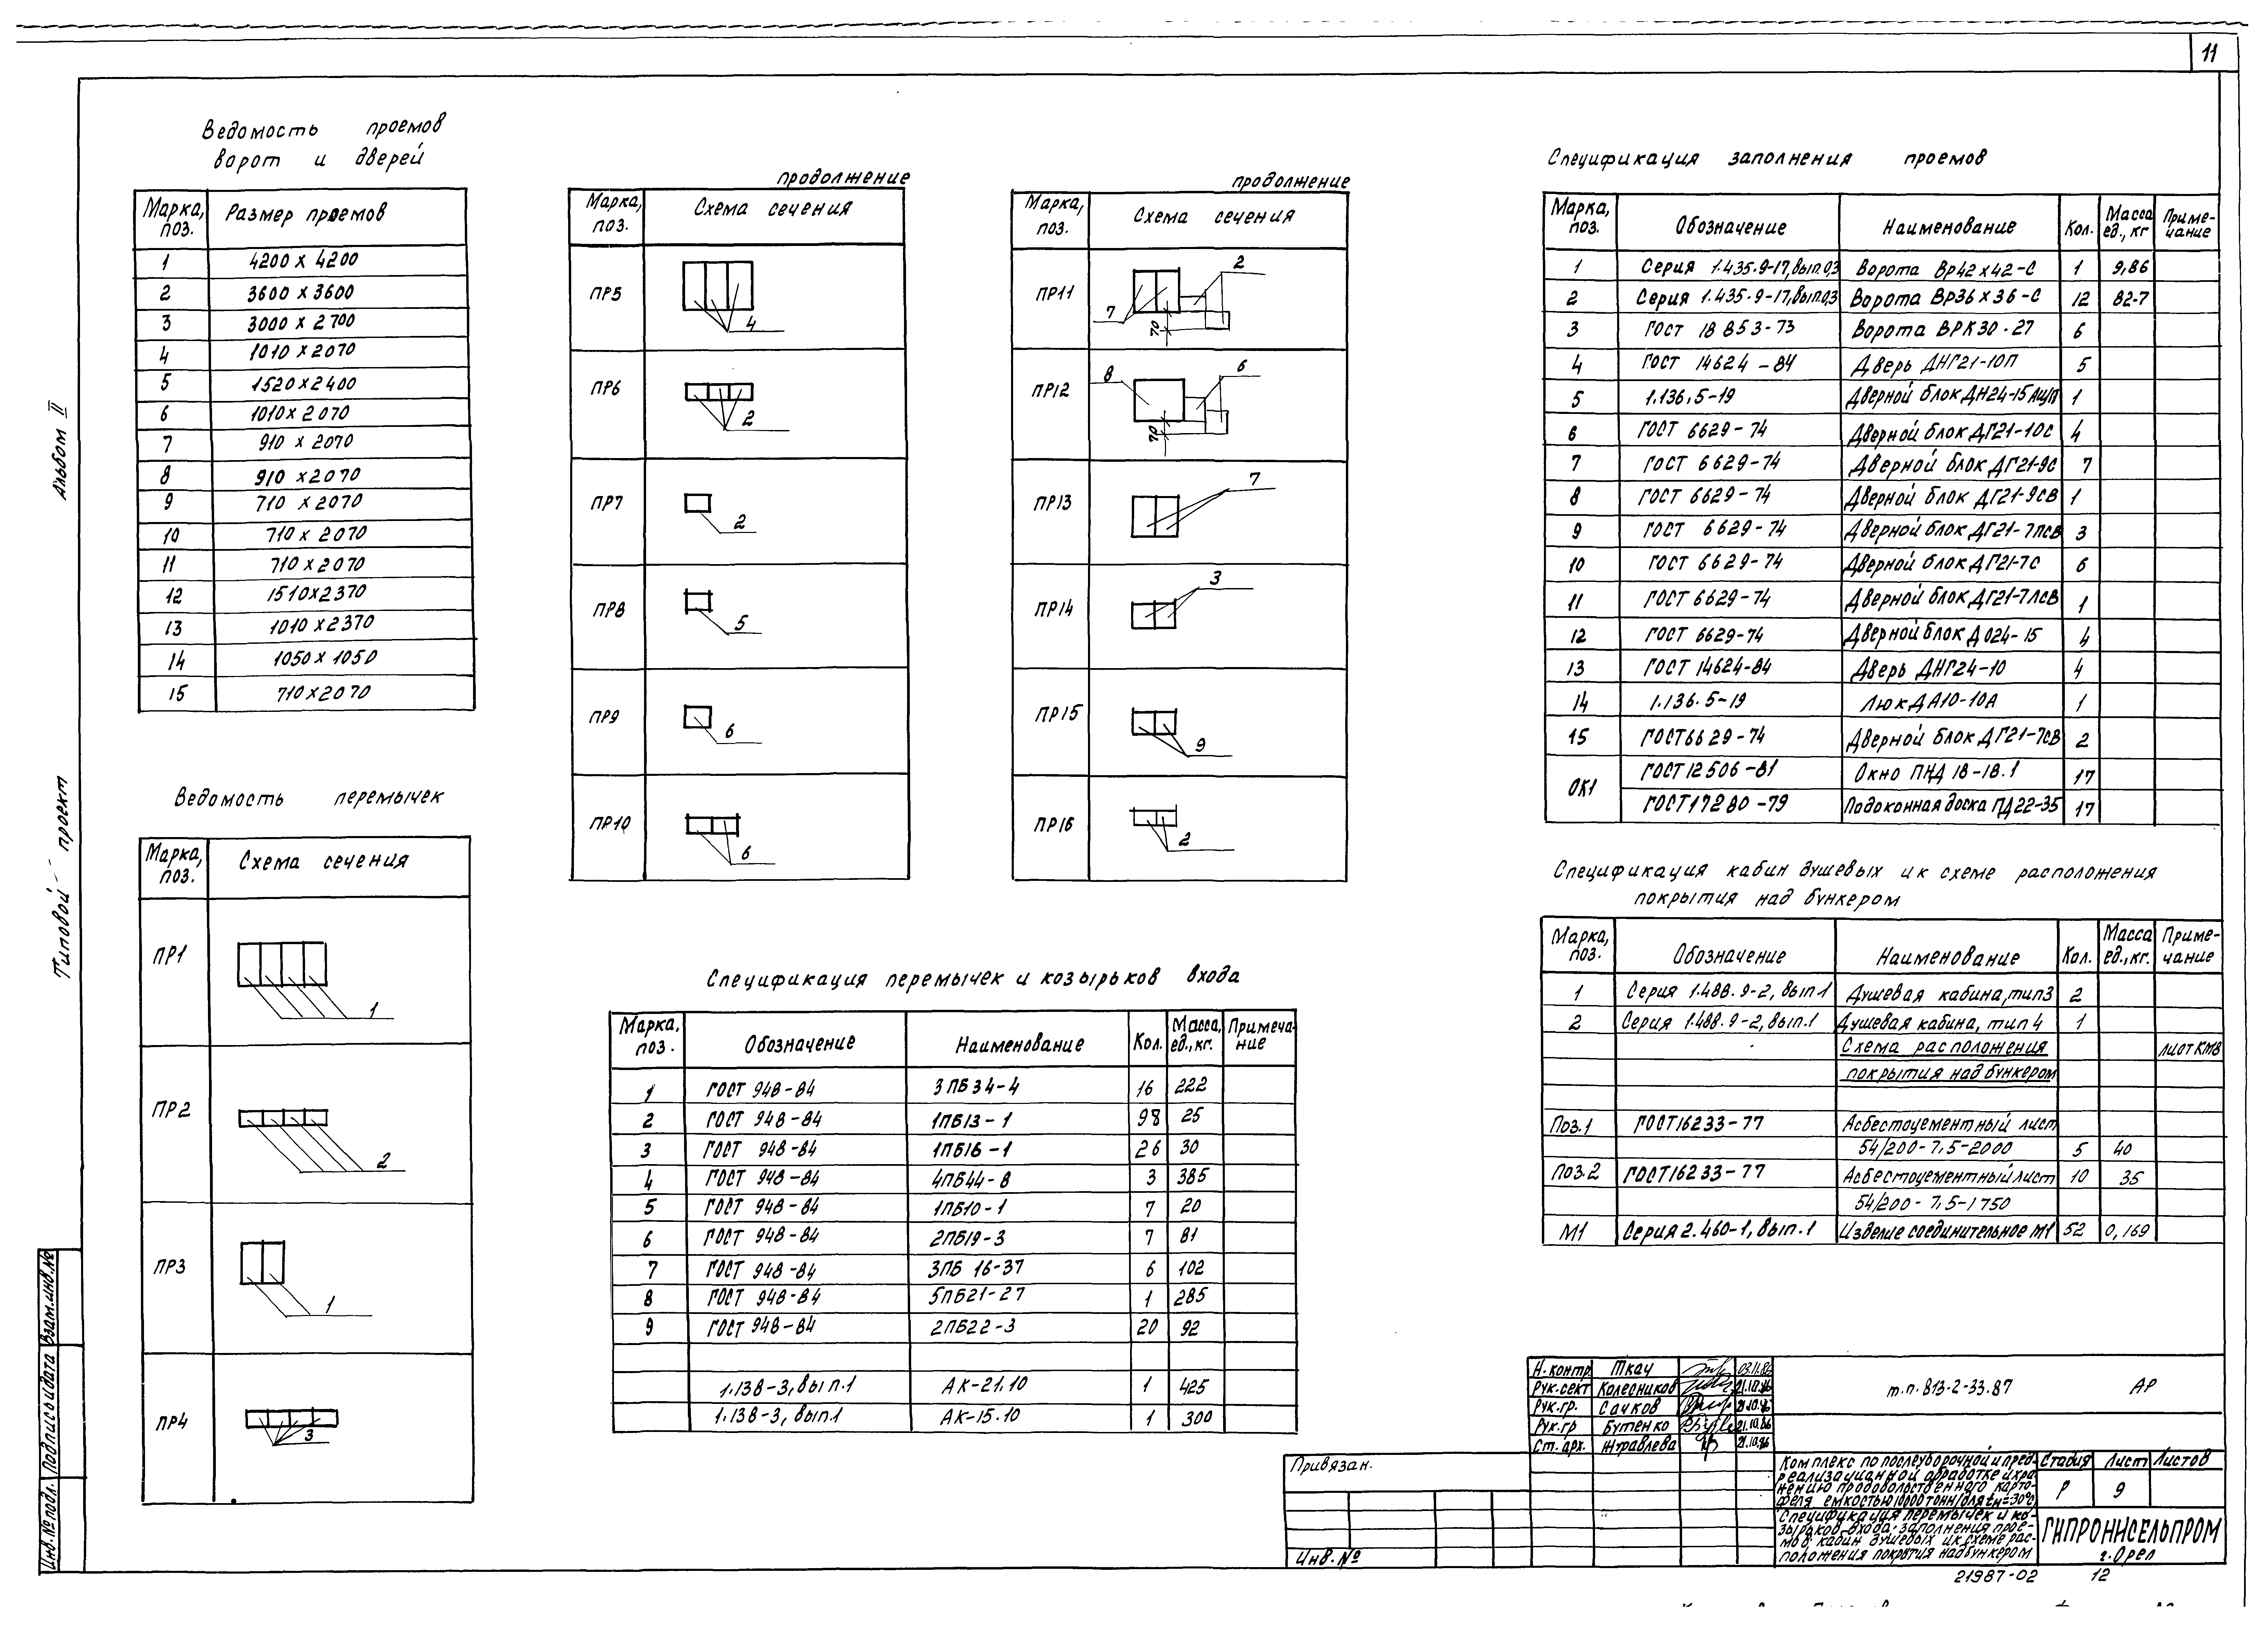 11
Альбом II
Типовой проект
Инв.№ подл. Подпись и дата Взам.инв.№
Ведомость проемов
ворот и дверей
Марка, поз. Размер проемов
1 4200 х 4200
2 3600 х 3600
3 3000 х 2700
4 1010 х 2070
5 1520х2400
6 1010х 2070
7 910 х 2070
8 910 х2070
9 710 х2070
10 710 х 2070
11 710 х 2070
12 1510х2370
13 1010 х2370
14 1050 х 1050
15 710х2070
Ведомость перемычек
Марка, поз. Схема сечения
ПР1 1
ПР2 2
ПР3 1
ПР4 3
продолжение
Марка, поз. Схема сечения
ПР5 4
ПР6 2
ПР7 2
ПР8 5
ПР9 6
ПР10 6
продолжение
Марка, поз. Схема сечения
ПР11 2 7 70
ПР12 8 6 70
ПР13 7
ПР14 3
ПР15 9
ПР16 2
Спецификация перемычек и козырьков входа
Марка, поз. Обозначение Наименование Кол. Масса, ед.,кг. Примечание
1 ГОСТ 948-84 3ПБ34-4 16 222
2 ГОСТ 948-84 1ПБ13-1 98 25
3 ГОСТ 948-84 1ПБ16-1 26 30
4 ГОСТ 948-84 4ПБ44-8 3 385
5 ГОСТ 948-84 1ПБ10-1 7 20
6 ГОСТ 948-84 2ПБ19-3 7 81
7 ГОСТ 948-84 3ПБ 16-37 6 102
8 ГОСТ 948-84 5ПБ21-27 1 285
9 ГОСТ 948-84 2ПБ22-3 20 92
1.138-3, вып.1 АК-21.10 1 425
1.138-3, вып.1 АК-15.10 1 300
Спецификация заполнения проемов
Марка, поз. Обозначение Наименование Кол. Масса ед., кг Примечание
1 Серия 1.435.9-17, вып.0,3 Ворота Вр42х42-С 1 9,86
2 Серия 1.435.9-17, вып.0,3 Ворота ВР36х36-С 12 82-7
3 ГОСТ 18853-73 Ворота ВРК30.27 6
4 ГОСТ 14624-84 Дверь ДНГ21-10П 5
5 1.136.5-19 Дверной блок ДН24-15АЩП 1
6 ГОСТ 6629-74 Дверной блок ДГ21-10С 4
7 ГОСТ 6629-74 Дверной блок ДГ21-9С 7
8 ГОСТ 6629-74 Дверной блок ДГ21-9СВ 1
9 ГОСТ 6629-74 Дверной блок ДГ21-7ПСВ 3
10 ГОСТ 6629-74 Дверной блок ДГ21-7С 6
11 ГОСТ 6629-74 Дверной блок ДГ21-7ЛСВ 1
12 ГОСТ 6629-74 Дверной блок ДО24-15 4
13 ГОСТ 14624-84 Дверь ДНГ24-10 4
14 1.136.5-19 Люк ДА10-10А 1
15 ГОСТ6629-74 Дверной блок ДГ21-7СВ 2
ОК1 ГОСТ12506-81 Окно ПНД 18-18.1 17
ГОСТ17280-79 Подоконная доска ПД22-35 17
Спецификация кабин душевых и к схеме расположения
покрытия над бункером
Марка, поз. Обозначение Наименование Кол. Масса ед.,кг. Примечание
1 Серия 1.488.9-2, вып.1 Душевая кабина, тип3 2
2 Серия 1.488.9-2, вып.1 Душевая кабина, тип 4 1
Схема расположения лист КМ8
покрытия над бункером
Поз.1 ГОСТ16233-77 Асбестоцементный лист
54/200-7,5-2000 5 40
Поз.2 ГОСТ16233-77 Асбестоцементный лист 10 35
54/200-7,5-1750
М1 Серия 2.460-1, вып.1 Изделие соединительное М1 52 0,169
Н.контр. Ткач 03.11.86
Рук.сект Колесников 21.10.86
Рук.гр. Сачков 21.10.86
Рук.гр Бутенко 21.10.86
Ст.арх. Журавлева 21.10.86
т.п. 813-2-33.87 АР
Привязан.
Инв.№
Комплекс по послеуборочной и пред-
реализационной обработке и хра-
нению продовольственного карто-
феля емкостью 1000 тонн/для tн=-30°С
Стадия Лист Листов
Р 9
Спецификация перемычек и ко-
зырьков входа. заполнения прое-
мов. кабин душевых и к схеме рас-
положения покрытия над бункером
ГИПРОНИСЕЛЬПРОМ
г.Орел
21987-02 12